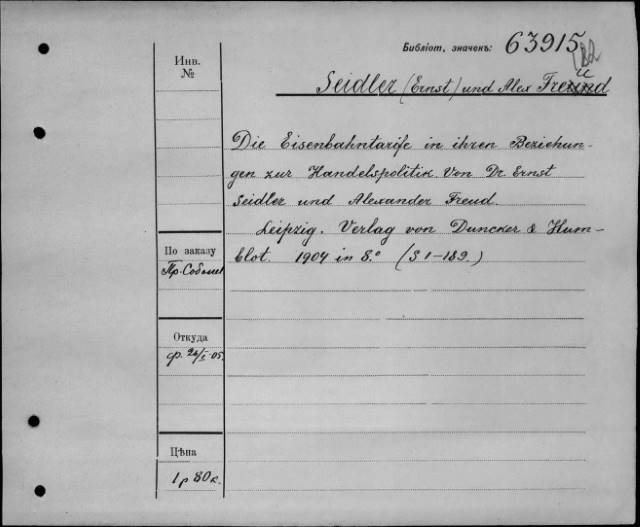 Библіот. значекъ: 63915
Инв.
№
Seidler (Ernst) und Alex Freund
Die Eisenbahntarife in ihren Beziehun-
gen zur Handelspolitik. Von Dr Ernst
Seidler und Alexander Freud.
Leipzig. Verlag von Duncker & Hum-
blot. 1904 in 8.° (S 1-189.)
По заказу
Пр.
Откуда
ф. 24/I 05.
Цѣна
1 р 80 к.